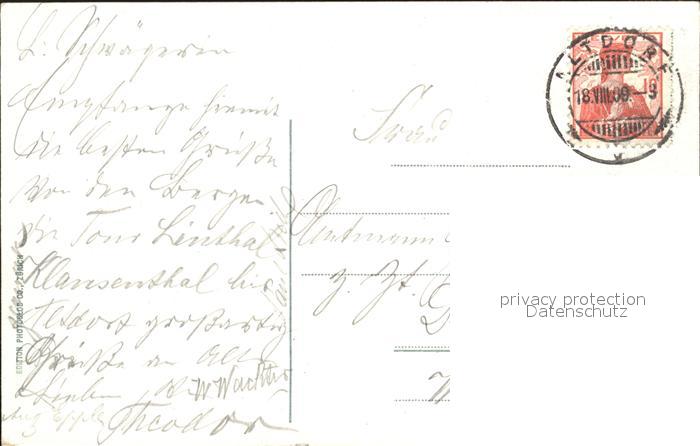 L. Schwägerin
Empfange hiermit
die besten Grüße
von den Bergen.
die Tour Linthal
Klausenthal bis
Altdorf großartig
Grüße an alle
Lieben
W. Wachter
Theodor
Frau
Amtmann
z. Zt.
ALTDORF
18.VIII.09.
10
EDITION PHOTOGLOB CO., ZÜRICH
privacy protection
Datenschutz